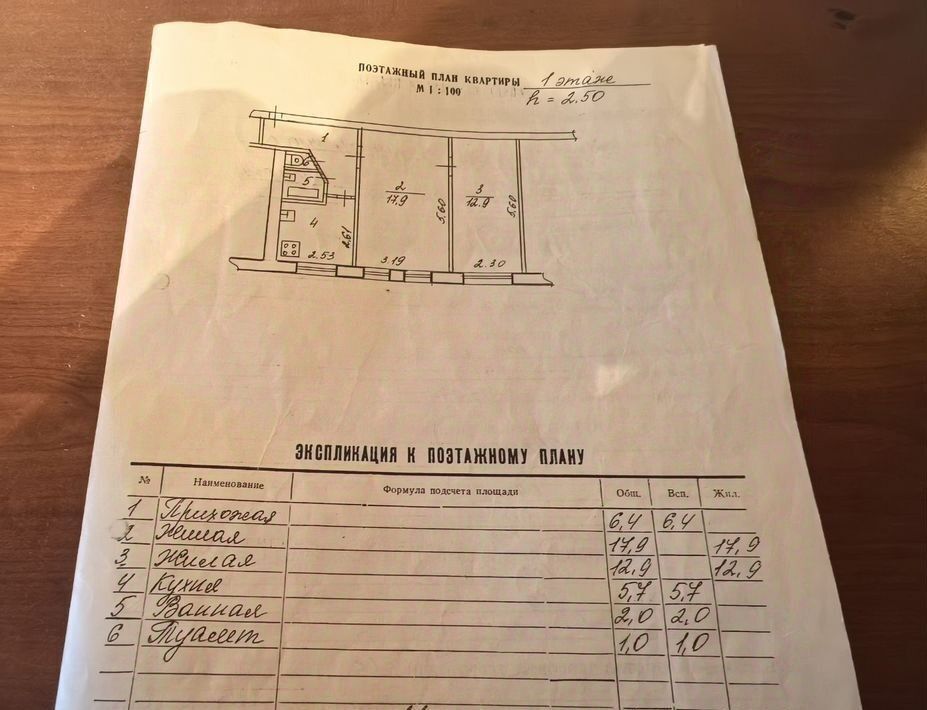 ПОЭТАЖНЫЙ ПЛАН КВАРТИРЫ 1 этаже
М 1 : 100 h = 2.50
1
6
5
2
17,9
3
12.9
5.60
5.60
4
2.61
2.53
3.19
2.30
ЭКСПЛИКАЦИЯ К ПОЭТАЖНОМУ ПЛАНУ
№ Наименование Формула подсчета площади Общ. Всп. Жил.
1 Прихожая 6,4 6,4
2 Жилая 17,9 17,9
3 Жилая 12,9 12,9
4 Кухня 5,7 5,7
5 Ванная 2,0 2,0
6 Туалет 1,0 1,0